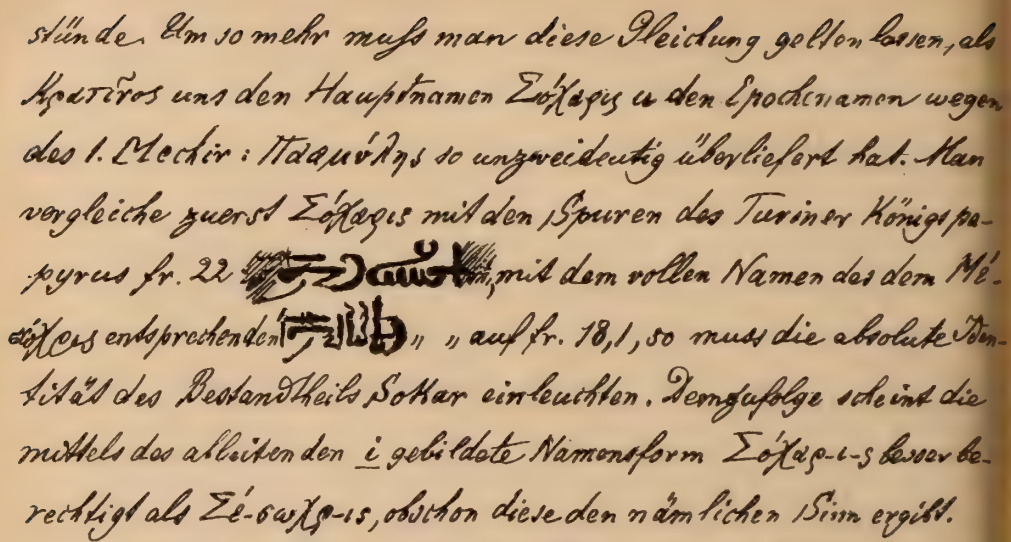 stünde. Um so mehr muſs man diese Gleichung gelten lassen, als
Κρατῖνος uns den Hauptnamen Σόχαρις u den Epochennamen wegen
des 1. Mechir: Πααμύλης so unzweideutig überliefert hat. Man
vergleiche zuerst Σόχαρις mit den Spuren des Turiner Königspa-
pyrus fr. 22 mit dem vollen Namen des dem Μέ-
σόχρις entsprechenden „ „ auf fr. 18,1, so muss die absolute Iden-
tität des Bestandtheils Sokar einleuchten. Demzufolge scheint die
mittels des ableitenden i gebildete Namensform Σόχαρ-ι-ς besser be-
rechtigt als Σέ-σωχρ-ις, obschon diese den nämlichen Sinn ergibt.